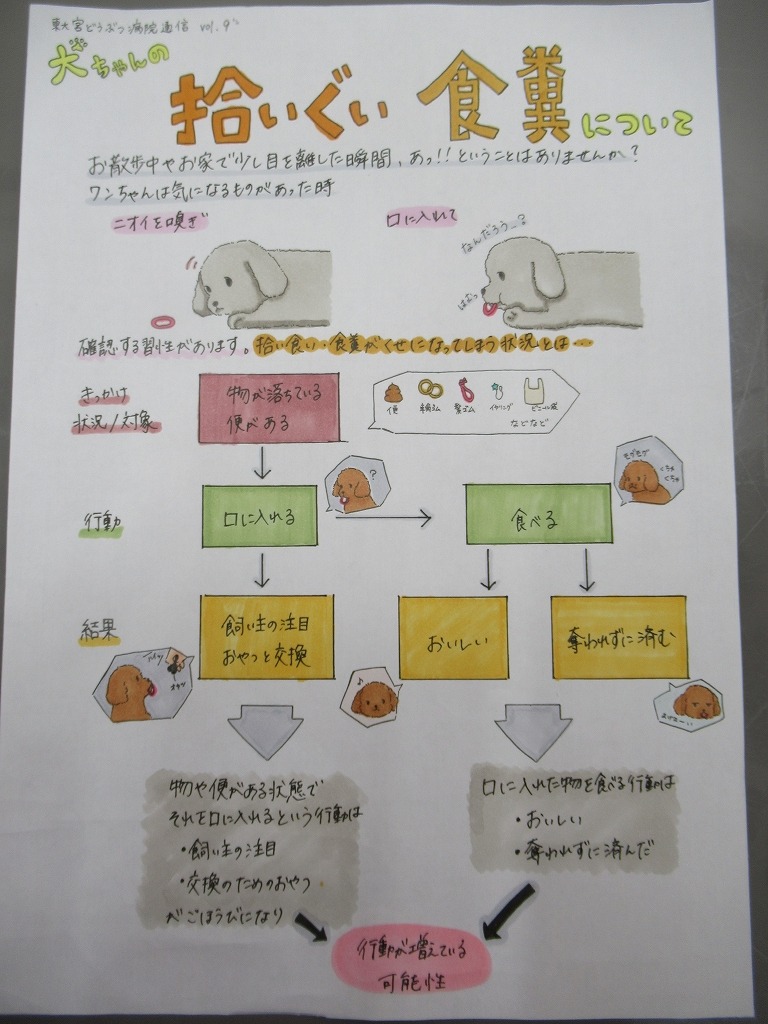 東大宮どうぶつ病院通信 vol.9
犬ちゃんの
拾いぐい 食糞について
お散歩中やお家で少し目を離した瞬間、あっ!!ということはありませんか?
ワンちゃんは気になるものがあった時
ニオイを嗅ぎ
口に入れて
なんだろう…?
はむっ
確認する習性があります。拾い食い・食糞がくせになってしまう状況とは…
きっかけ
状況/対象
物が落ちている
便がある
便 輪ゴム 髪ゴム イヤリング ビニール袋
などなど
行動
口に入れる
?
食べる
モグモグ
くちゃ
くちゃ
結果
飼い主の注目
おやつと交換
おいしい
奪われずに済む
オヤツ
♪
物や便がある状態で
それを口に入れるという行動は
・飼い主の注目
・交換のためのおやつ
がごほうびになり
口に入れた物を食べる行動は
・おいしい
・奪われずに済んだ
行動が増えている
可能性